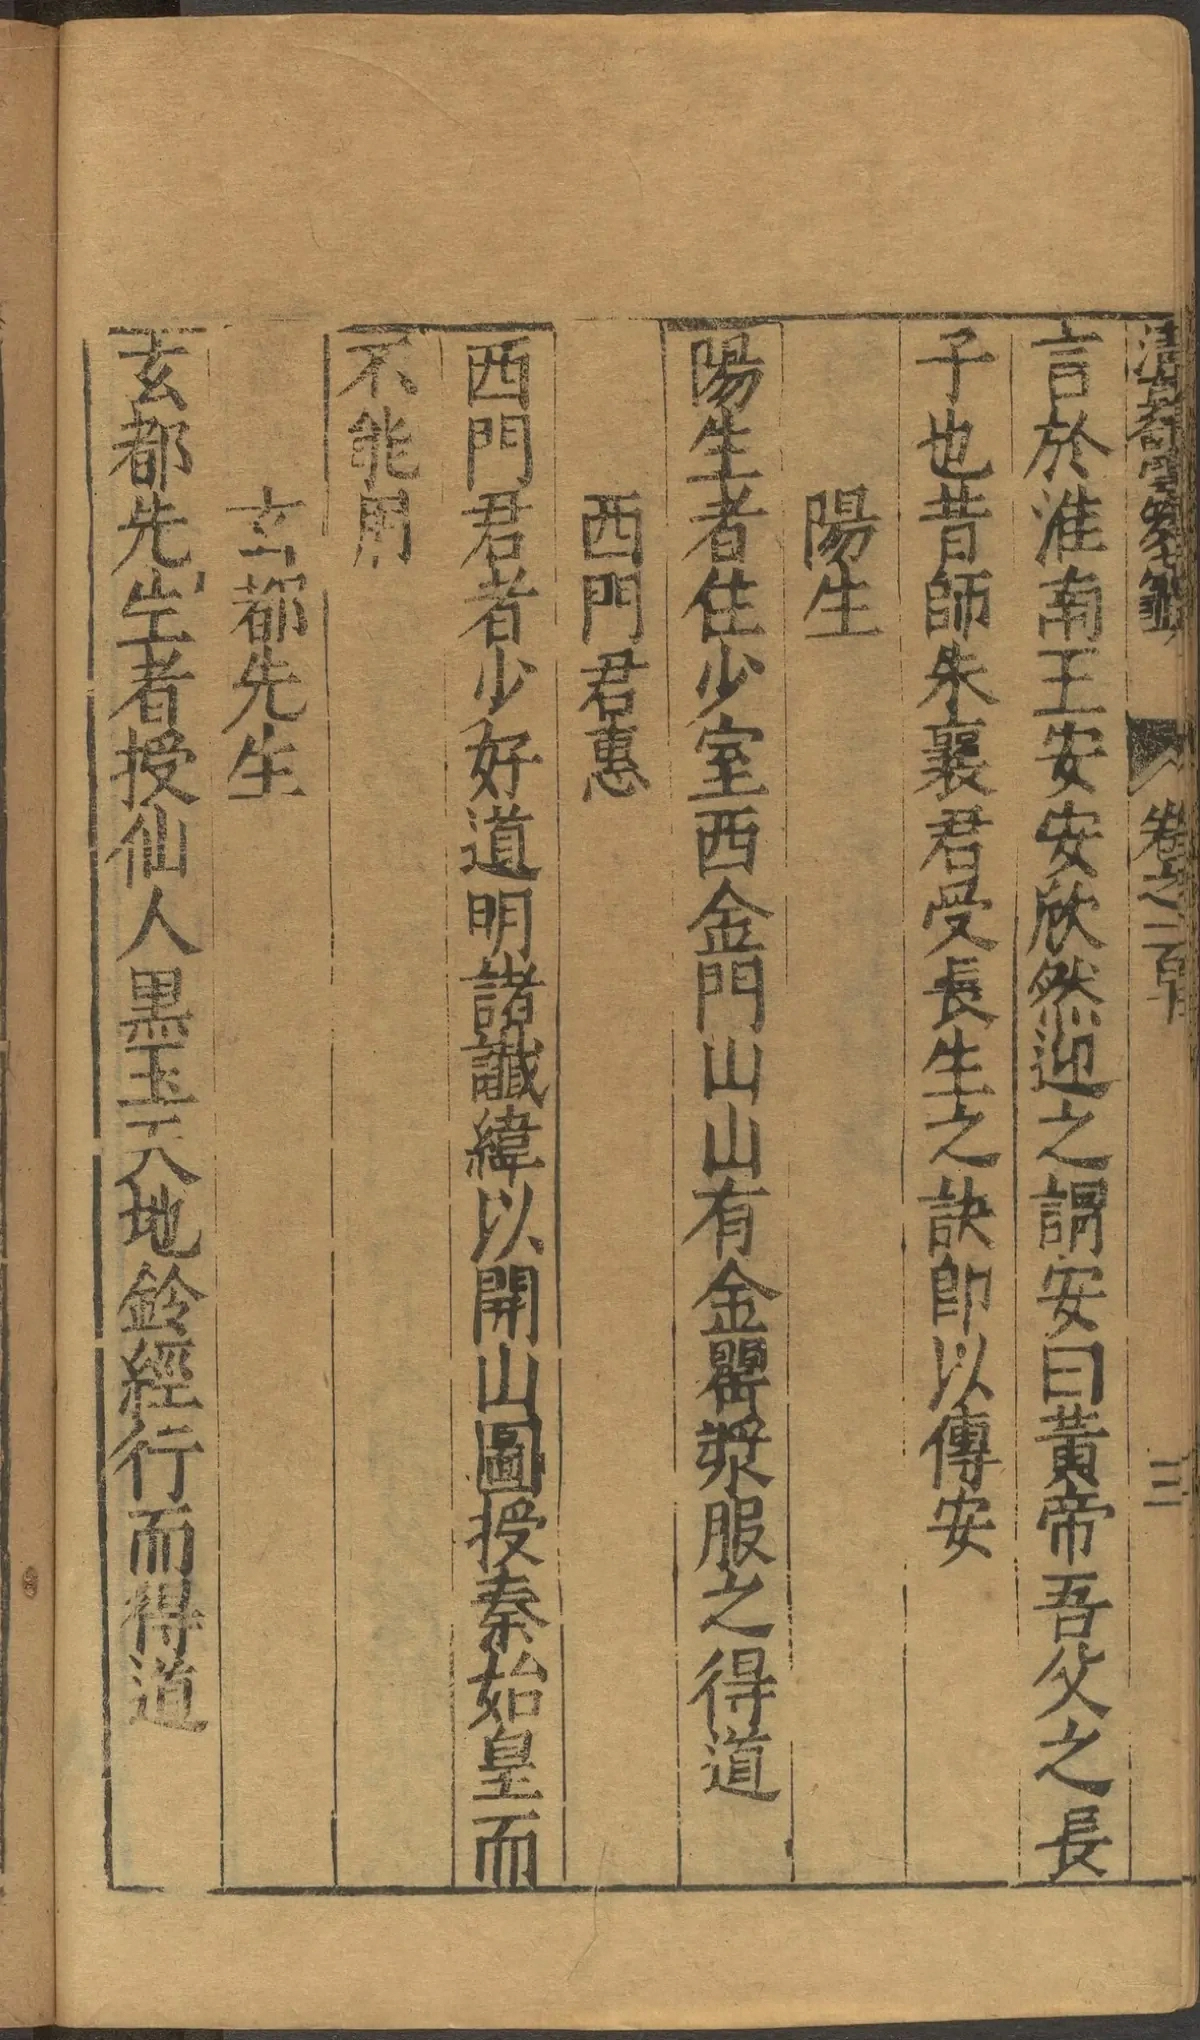 卷之二
三
言於淮南王安安欣然迎之謂安曰黃帝吾父之長
子也昔師朱襄君受長生之訣即以傳安
陽生
陽生者住少室西金門山山有金罌漿服之得道
西門君惠
西門君者少好道明諸讖緯以開山圖授秦始皇而
不能用
玄都先生
玄都先生者授仙人黑玉天地鈴經行而得道